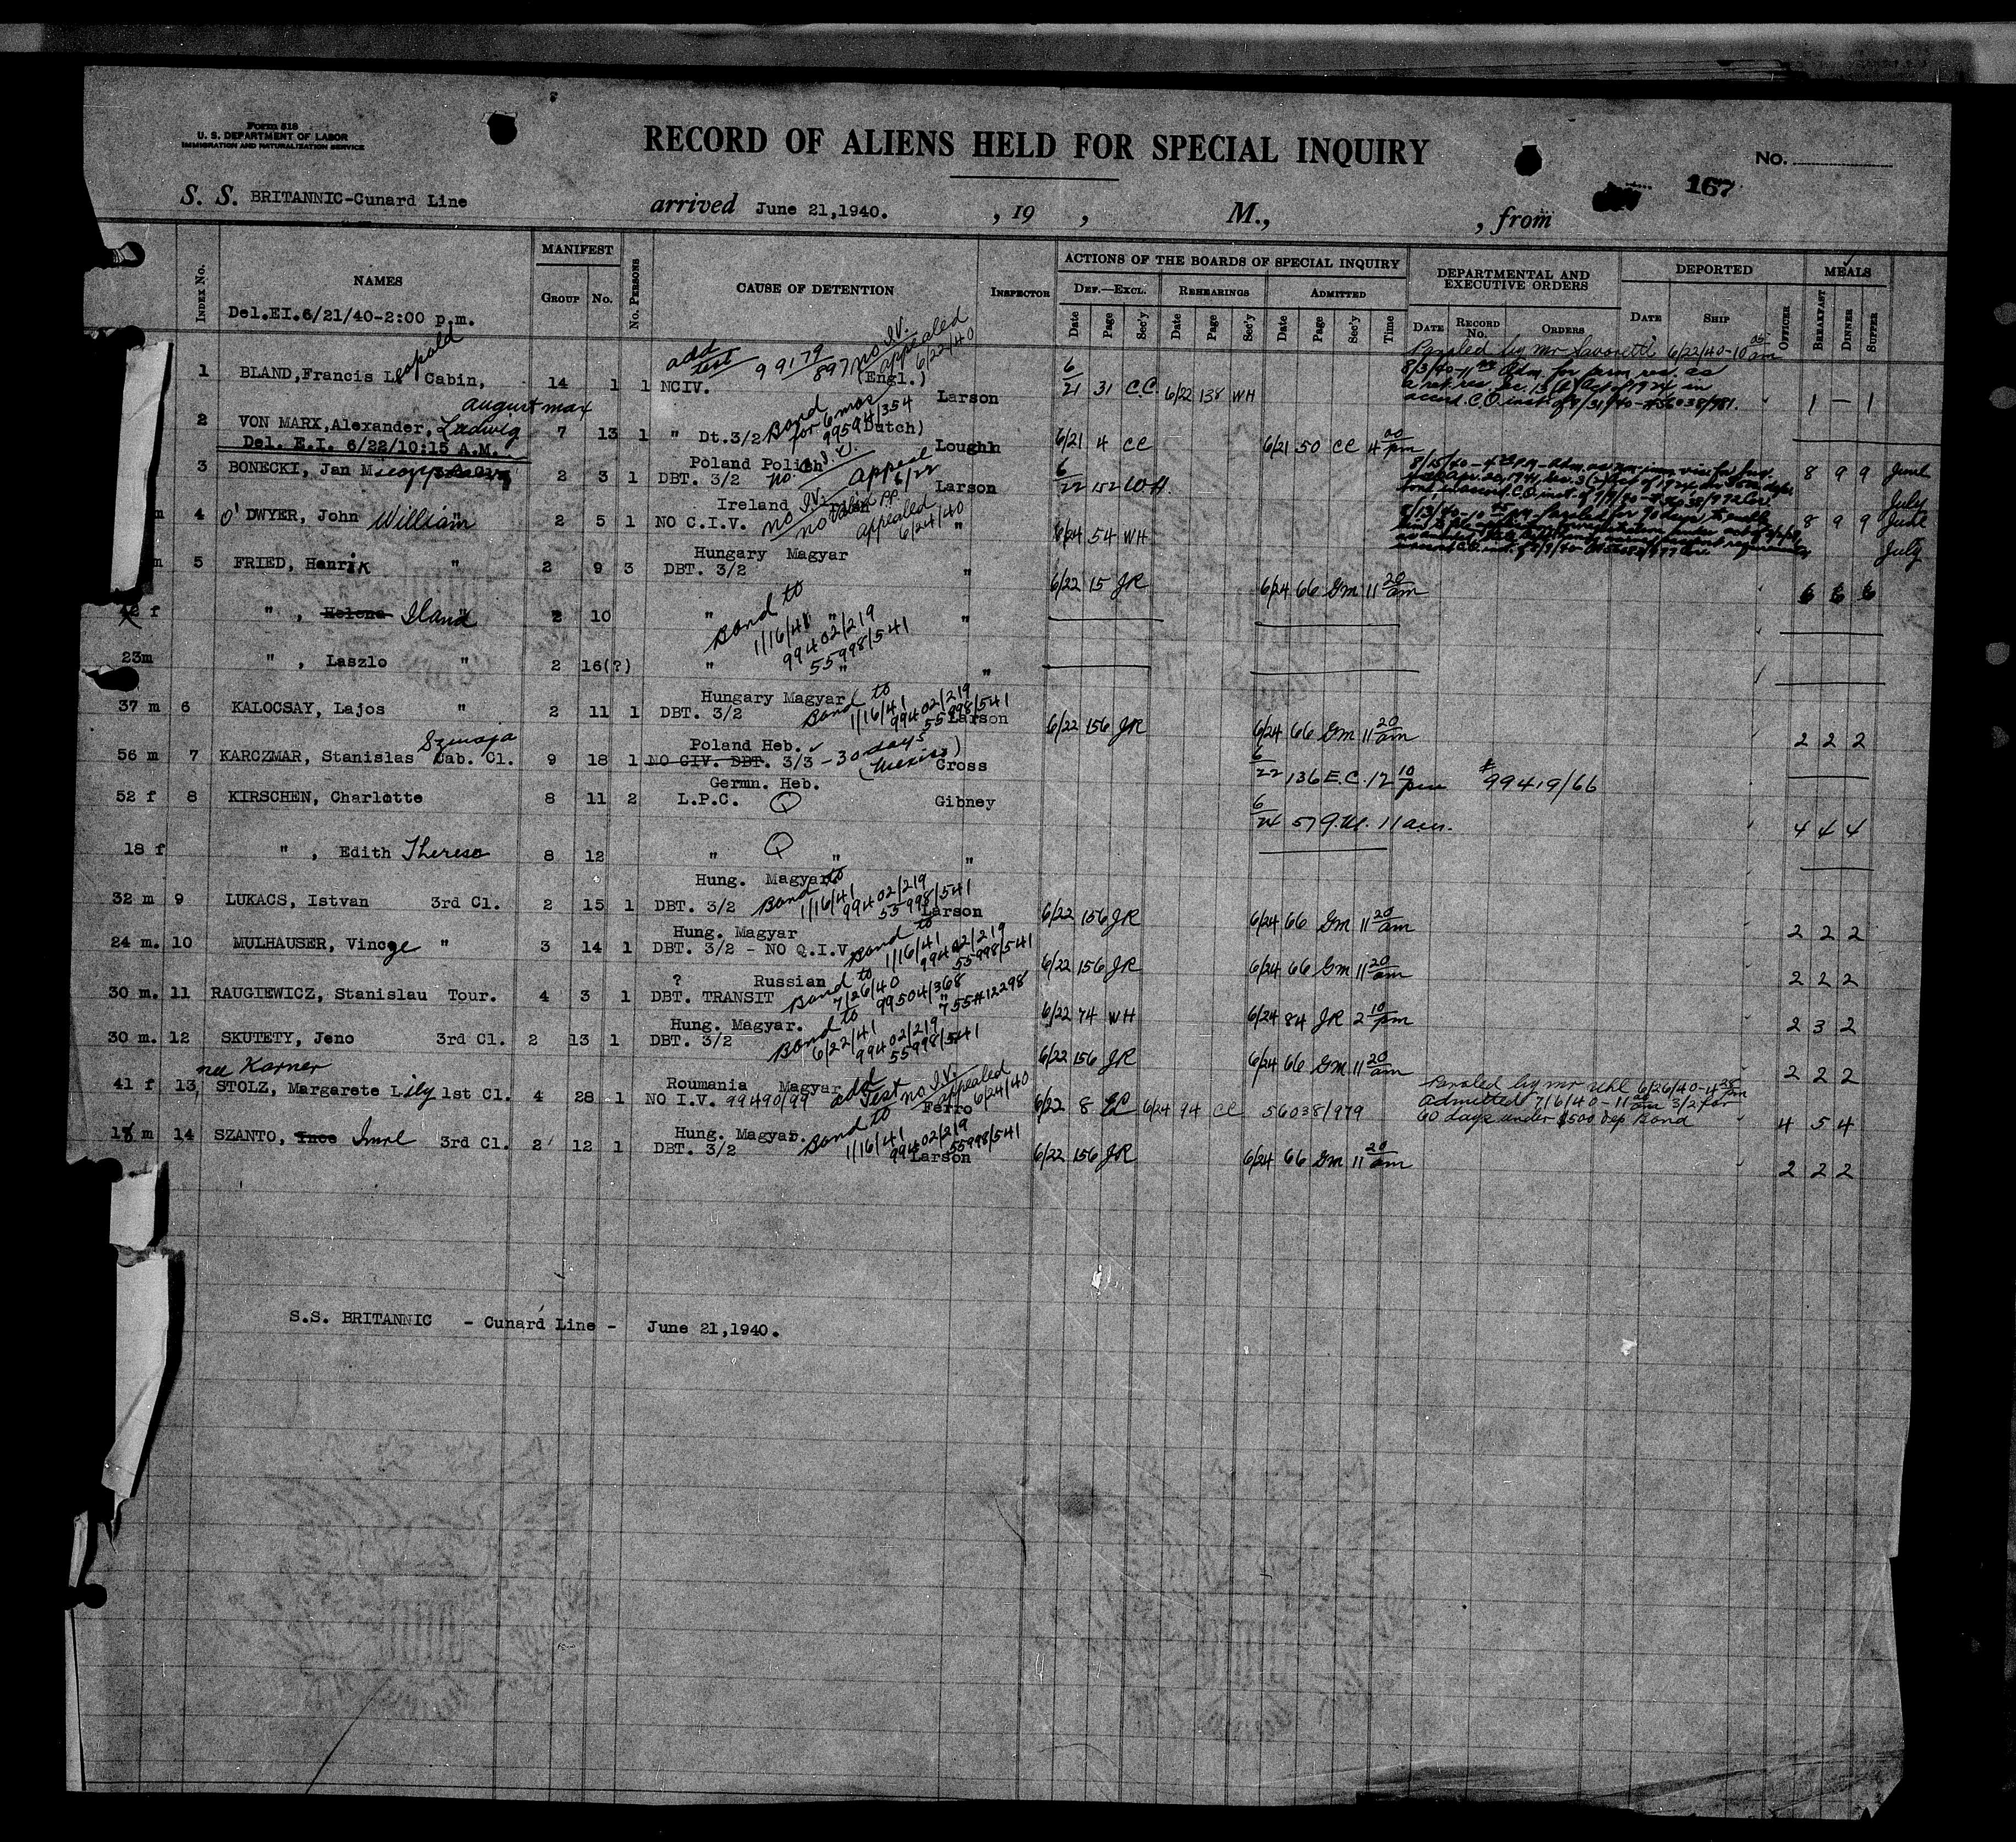 Form 518
U. S. DEPARTMENT OF LABOR
IMMIGRATION AND NATURALIZATION SERVICE
RECORD OF ALIENS HELD FOR SPECIAL INQUIRY
No.
167
S. S. BRITANNIC-Cunard Line arrived June 21,1940. , 19 , M., , from
INDEX No. NAMES MANIFEST GROUP No. No. PERSONS CAUSE OF DETENTION INSPECTOR
ACTIONS OF THE BOARDS OF SPECIAL INQUIRY
DEF.—EXCL. REHEARINGS ADMITTED
Date Page Sec'y Date Page Sec'y Date Page Sec'y Time
DEPARTMENTAL AND EXECUTIVE ORDERS
DATE RECORD No. ORDERS
DEPORTED
DATE SHIP OFFICER
MEALS
BREAKFAST DINNER SUPPER
Del.EI.6/21/40-2:00 p.m.
Paroled by mr 6/22/40-10 05 am
1 BLAND,Francis Leopold Cabin, 14 1 1 NCIV. add test 99179/897 no I.V. appealed 6/22/40 (Engl.) Larson 6/21 31 C.C. 6/22 138 WH 1 — 1
2 VON MARX,Alexander, Ludwig august max 7 13 1 " Dt.3/2 Bond for 6 mos 99594/354 Dutch) Loughln 6/21 4 CC 6/21 50 CC 4 00 pm
Del. E.I. 6/22/10:15 A.M.
3 BONECKI, Jan 2 3 1 Poland Polish DBT. 3/2 no I.V. Appeal 6/22 Larson 6/22 152 WH. 8 9 9 June July
4 O'DWYER, John William " 2 5 1 Ireland NO C.I.V. no I.V. no Valid PP. appealed 6/24/40 " 6/24 54 WH 8 9 9 June July
5 FRIED, Henrik " 2 9 3 Hungary Magyar DBT. 3/2 " 6/22 15 JR 6/24 66 Gm 11 20 am 6 6 6
42 f " , Helena Ilana " 2 10 " " Bond to 1/16/41 99402/219 55998/541 "
23m " , Laszlo " 2 16(?) " " "
37 m 6 KALOCSAY, Lajos " 2 11 1 Hungary Magyar DBT. 3/2 Bond to 1/16/41 99402/219 55998/541 Larson 6/22 156 JR 6/24 66 Gm 11 20 am 2 2 2
56 m 7 KARCZMAR, Stanislas Szmaja Cab. Cl. 9 18 1 Poland Heb. NO CIV. DBT. 3/3 - 30 days (Mexico) Cross 6/22 136 E.C. 12 10 pm # 99419/66
52 f 8 KIRSCHEN, Charlotte 8 11 2 Germn. Heb. L.P.C. Q Gibney 6/24 57 11 am. 4 4 4
18 f " , Edith Therese 8 12 " Q " "
32 m 9 LUKACS, Istvan 3rd Cl. 2 15 1 Hung. Magyar DBT. 3/2 Bond to 1/16/41 99402/219 55998/541 Larson 6/22 156 JR 6/24 66 Gm 11 20 am 2 2 2
24 m. 10 MULHAUSER, Vincze " 3 14 1 Hung. Magyar DBT. 3/2 - NO Q.I.V. Bond to 1/16/41 99402/219 55998/541 6/22 156 JR 6/24 66 Gm 11 20 am 2 2 2
30 m. 11 RAUGIEWICZ, Stanislau Tour. 4 3 1 ? Russian DBT. TRANSIT Bond to 7/26/40 99504/368 " 6/22 74 WH 6/24 84 JR 2 10 pm 2 3 2
30 m. 12 SKUTETY, Jeno 3rd Cl. 2 13 1 Hung. Magyar. DBT. 3/2 Bond to 6/22/41 99402/219 55998/541 6/22 156 JR 6/24 66 Gm 11 20 am 2 2 2
nee Karner
41 f 13 STOLZ, Margarete Lily 1st Cl. 4 28 1 Roumania Magyar NO I.V. 99490/99 add Test no I.V. appealed 6/24/40 Ferro 6/22 8 EC 6/24 94 CC 56038/979 Paroled by mr Uhl 6/26/40-4 25 pm admitted 7/6/40-11 am 3/2 for 60 days under $500 dep Bond 4 5 4
m 14 SZANTO, Imre 3rd Cl. 2 12 1 Hung. Magyar. DBT. 3/2 Bond to 1/16/41 99402/219 55998/541 Larson 6/22 156 JR 6/24 66 Gm 11 20 am 2 2 2
S.S. BRITANNIC - Cunard Line - June 21,1940.